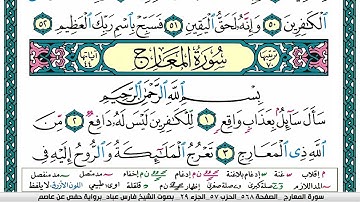 ٱلْكَٰفِرِينَ ٥٠ وَإِنَّهُۥ لَحَقُّ ٱلْيَقِينِ ٥١ فَسَبِّحْ بِٱسْمِ رَبِّكَ ٱلْعَظِيمِ ٥٢
سُورَةُ الْمَعَارِجِ
بِسْمِ ٱللَّهِ ٱلرَّحْمَٰنِ ٱلرَّحِيمِ
سَأَلَ سَآئِلٌۢ بِعَذَابٍ وَاقِعٍ ١ لِّلْكَٰفِرِينَ لَيْسَ لَهُۥ دَافِعٌ ٢ مِّنَ
ٱللَّهِ ذِى ٱلْمَعَارِجِ ٣ تَعْرُجُ ٱلْمَلَٰٓئِكَةُ وَٱلرُّوحُ إِلَيْهِ فِى
سورة المعارج الصفحة ٥٦٨ الحزب ٥٧ الجزء ٢٩ بصوت الشيخ فارس عباد برواية حفص عن عاصم